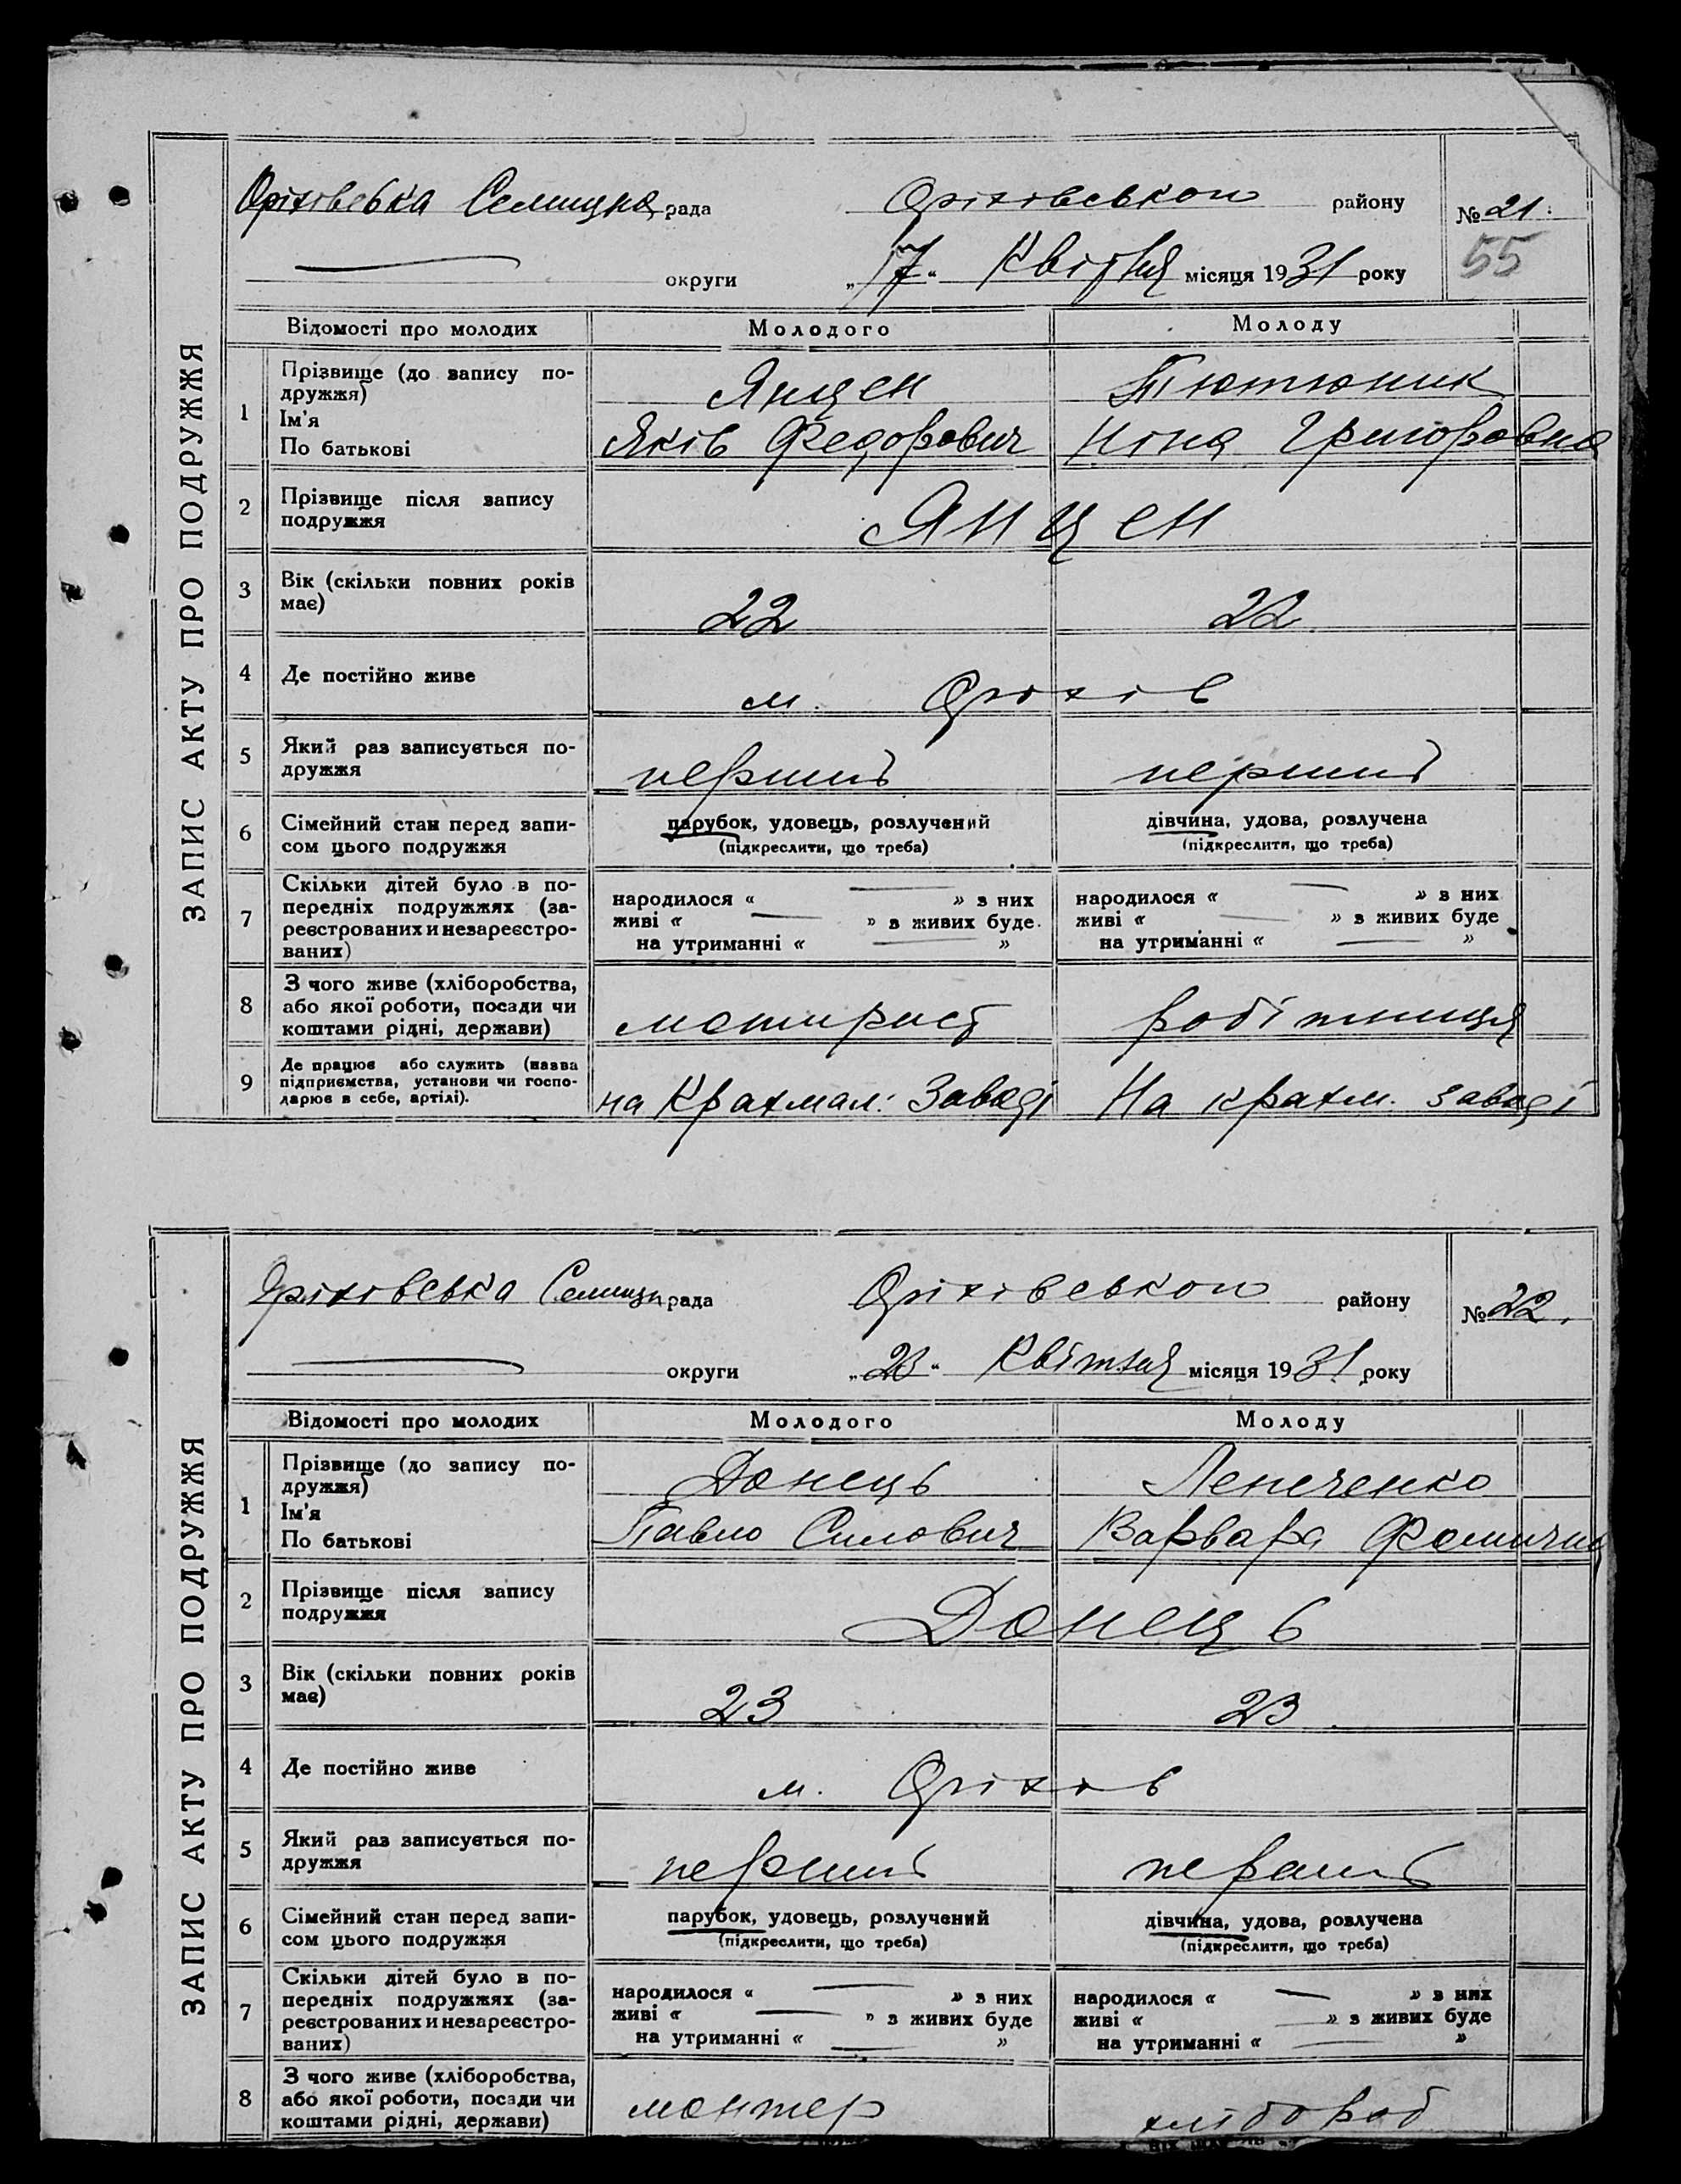 ЗАПИС АКТУ ПРО ПОДРУЖЖЯ
Оріхівська Селищна рада Оріхівського району № 21.
округи „17“ Квітня місяця 1931 року 55
Відомості про молодих Молодого Молоду
1 Прізвище (до запису по-
дружжя) Янцен Тютюник
Ім'я
По батькові Яків Федорович Ніна Григоровна
2 Прізвище після запису
подружжя Янцен
3 Вік (скільки повних років
має) 22 22
4 Де постійно живе м. Оріхів
5 Який раз записується по-
дружжя перший перший
6 Сімейний стан перед запи-
сом цього подружжя
парубок, удовець, розлучений дівчина, удова, розлучена
(підкреслити, що треба) (підкреслити, що треба)
7 Скільки дітей було в по-
передніх подружжях (за-
реєстрованих и незареєстро-
ваних)
народилося « » з них народилося « » з них
живі « » з живих буде живі « » з живих буде
на утриманні « » на утриманні « »
8 З чого живе (хліборобства,
або якої роботи, посади чи
коштами рідні, держави) мотирист робітниця
9 Де працює або служить (назва
підприємства, установи чи госпо-
дарює в себе, артілі). на Крахмал. Заводі На крахм. заводі
ЗАПИС АКТУ ПРО ПОДРУЖЖЯ
Оріхівська рада Оріхівського району № 22.
округи „23“ Квітня місяця 1931 року
Відомості про молодих Молодого Молоду
1 Прізвище (до запису по-
дружжя) Донець Лепеченко
Ім'я
По батькові Павло Силович Варвара Фомична
2 Прізвище після запису
подружжя Донець
3 Вік (скільки повних років
має) 23 23
4 Де постійно живе м. Оріхів
5 Який раз записується по-
дружжя перший перший
6 Сімейний стан перед запи-
сом цього подружжя
парубок, удовець, розлучений дівчина, удова, розлучена
(підкреслити, що треба) (підкреслити, що треба)
7 Скільки дітей було в по-
передніх подружжях (за-
реєстрованих и незареєстро-
ваних)
народилося « » з них народилося « » з них
живі « » з живих буде живі « » з живих буде
на утриманні « » на утриманні « »
8 З чого живе (хліборобства,
або якої роботи, посади чи
коштами рідні, держави) монтер хлібороб